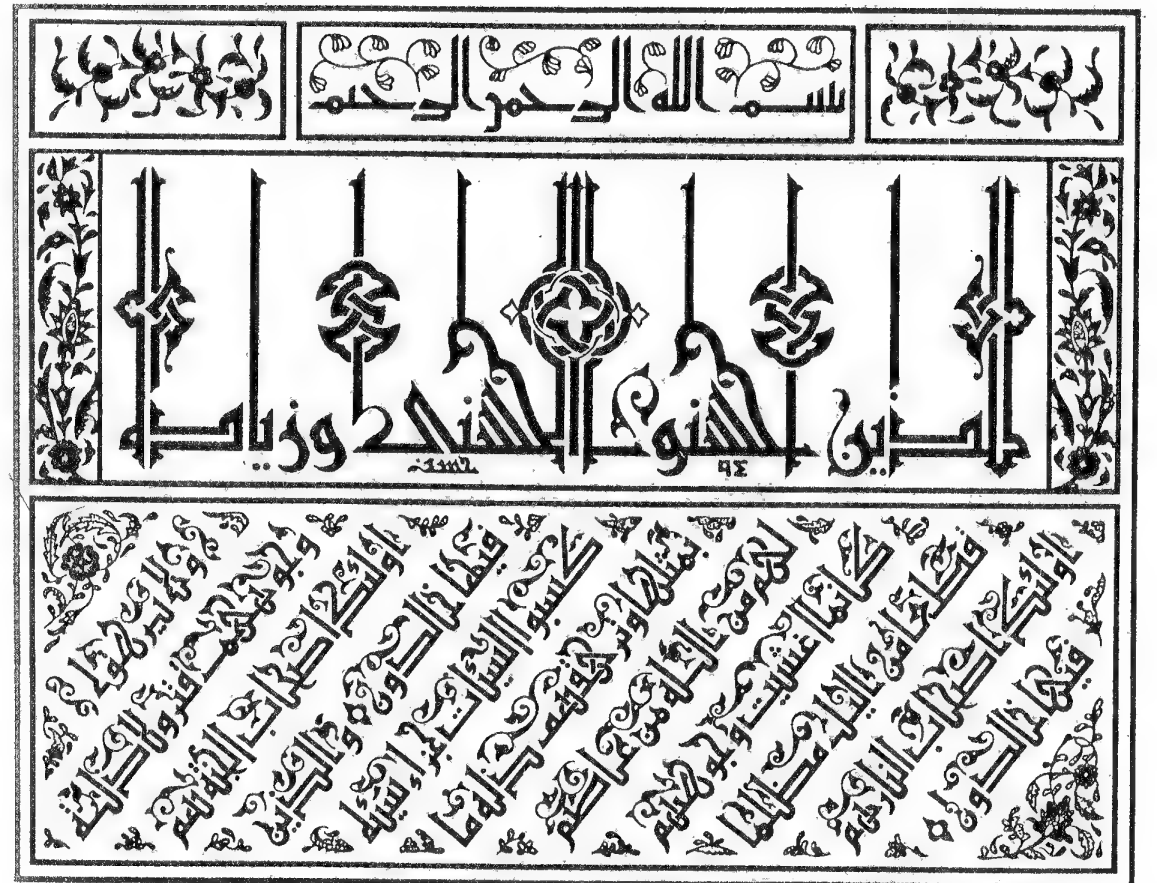 بسم الله الرحمن الرحيم
للذين احسنوا الحسنى وزيادة
٩٤
ولا يرهق
وجوههم قتر ولا ذلة
اولئك اصحاب الجنة هم
فيها خالدون والذين
كسبوا السيئات جزاء سيئة
بمثلها وترهقهم ذلة ما
لهم من الله من عاصم
كانما اغشيت وجوههم
قطعا من الليل مظلما
اولئك اصحاب النار هم
فيها خالدون